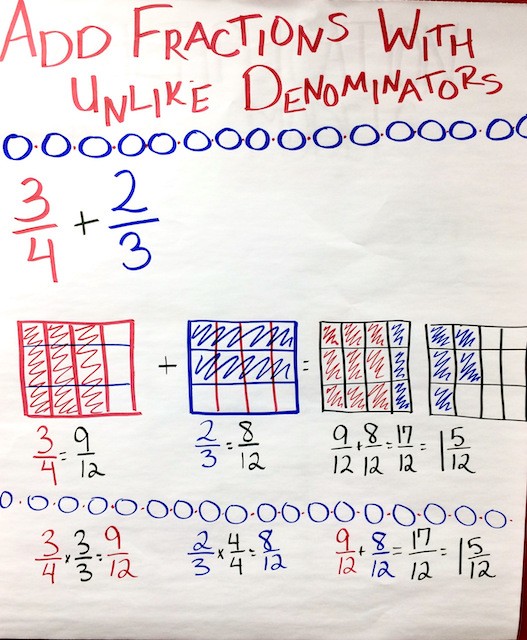 ADD FRACTIONS WITH
UNLIKE DENOMINATORS
3/4 + 2/3
+ =
3/4 = 9/12 2/3 = 8/12 9/12 + 8/12 = 17/12 = 1 5/12
3/4 × 3/3 = 9/12 2/3 × 4/4 = 8/12 9/12 + 8/12 = 17/12 = 1 5/12